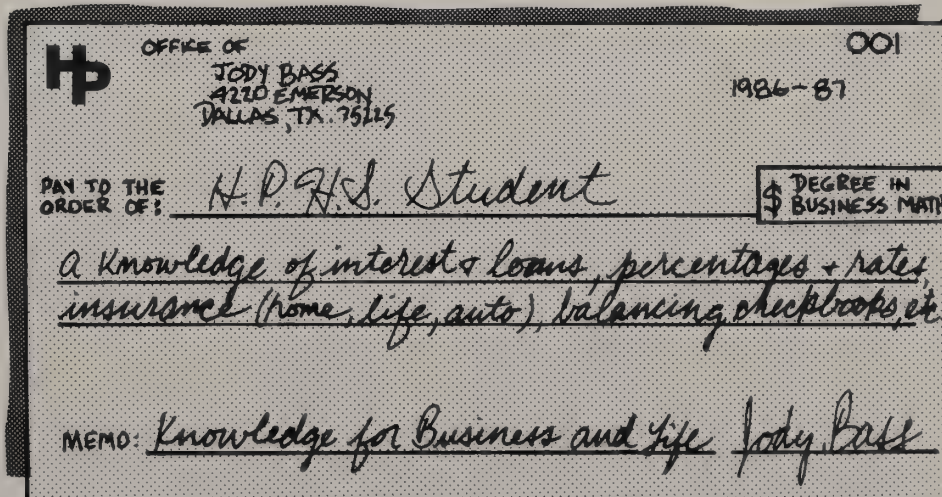 HP
OFFICE OF
JODY BASS
4220 EMERSON
DALLAS, TX. 75225
001
1986-87
PAY TO THE
ORDER OF:
H.P.H.S. Student
$ DEGREE IN
BUSINESS MATH
a Knowledge of interest & loans, percentages + rates,
insurance (home, life, auto), balancing checkbooks, et
MEMO: Knowledge for Business and Life Jody Bass